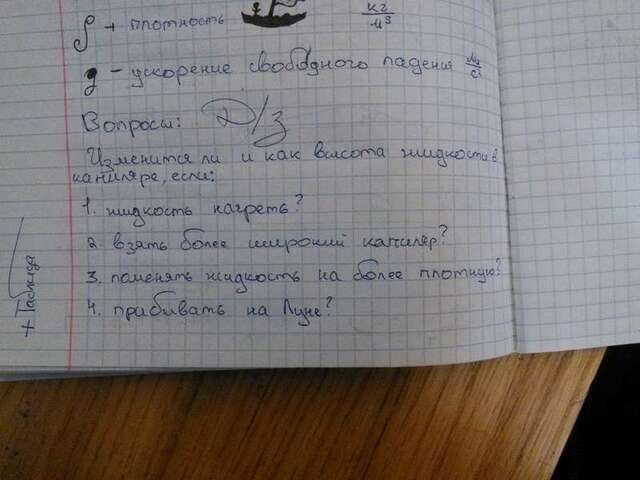 ρ + плотность кг/м³
g - ускорение свободного падения м/с²
Вопросы: Д/З
Изменится ли и как высота жидкости в
капиляре, если:
1. жидкость нагреть?
2. взять более широкий капиляр?
3. поменять жидкость на более плотную?
4. прибивать на Луне?
+ Таблица